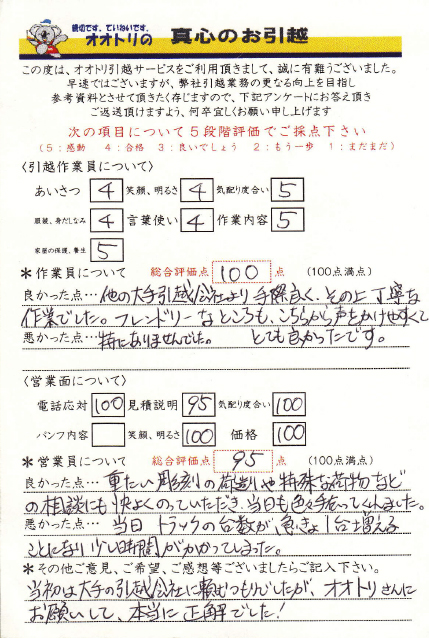 親切です、ていねいです。
オオトリの 真心のお引越
この度は、オオトリ引越サービスをご利用頂きまして、誠に有難うございました。
早速ではございますが、弊社引越業務の更なる向上を目指し
参考資料とさせて頂きたく存じますので、下記アンケートにお答え頂き
ご返送頂けますよう、何卒宜しくお願い申し上げます
次の項目について5段階評価でご採点下さい
(5:感動 4:合格 3:良いでしょう 2:もう一歩 1:まだまだ)
〈引越作業員について〉
あいさつ 4 笑顔、明るさ 4 気配り度合い 5
服装、身だしなみ 4 言葉使い 4 作業内容 5
家屋の保護、養生 5
*作業員について 総合評価点 100 点 (100点満点)
良かった点…他の大手引越会社より手際良く、その上丁寧な
作業でした。フレンドリーなところも、こちらから声をかけやすくて
悪かった点…特にありませんでした。 とても良かったです。
〈営業面について〉
電話応対 100 見積説明 95 気配り度合い 100
パンフ内容 笑顔、明るさ 100 価格 100
*営業員について 総合評価点 95 点 (100点満点)
良かった点…重たい彫刻の荷造りや特殊な荷物など
の相談にも快よくのっていただき、当日も色々手伝ってくれました。
悪かった点…当日トラックの台数が急きょ1台増える
ことになり少し時間がかかってしまった。
*その他ご意見、ご希望、ご感想等ございましたらご記入下さい。
当初は大手の引越会社に頼むつもりでしたが、オオトリさんに
お願いして、本当に正解でした!